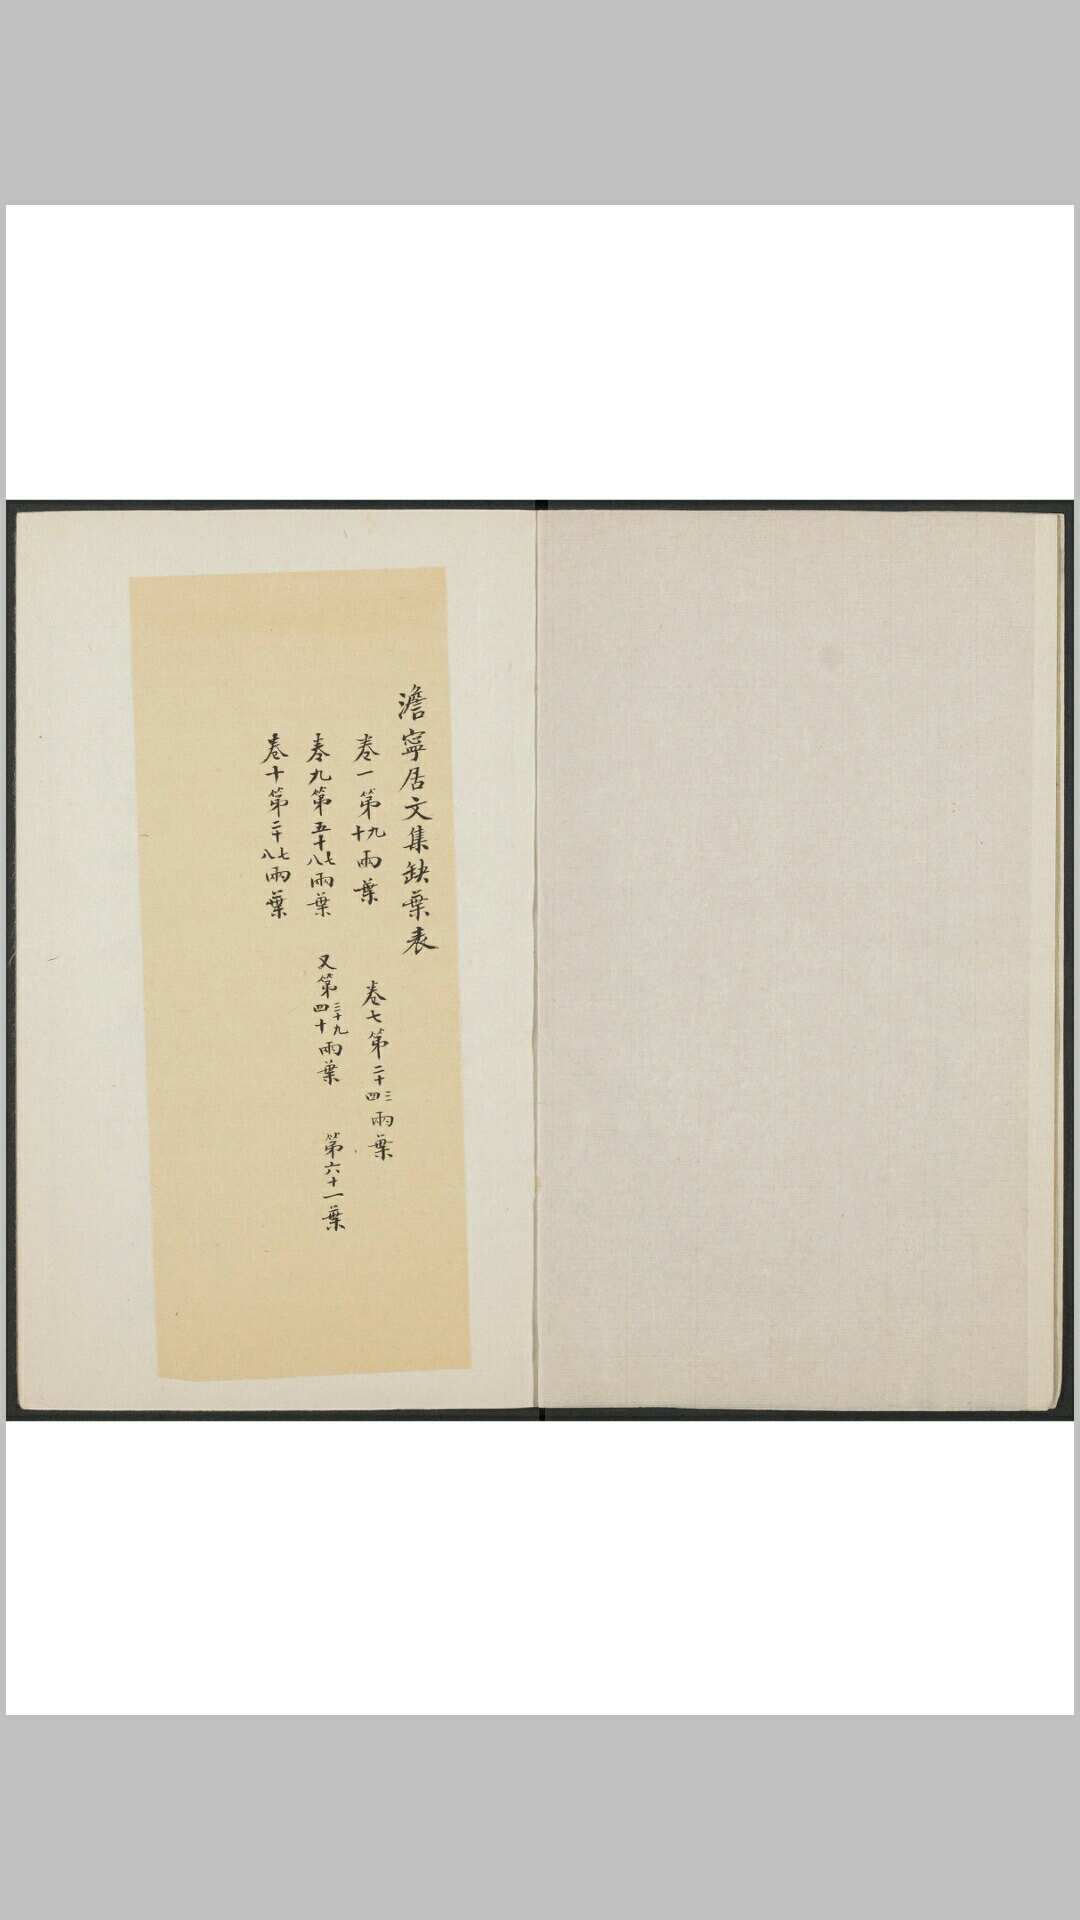 澹寧居文集缺葉表
卷一第九十兩葉
卷七第二十三四兩葉
卷九第五十七八兩葉
又第三十九四十兩葉
第六十一葉
卷十第二十七八兩葉